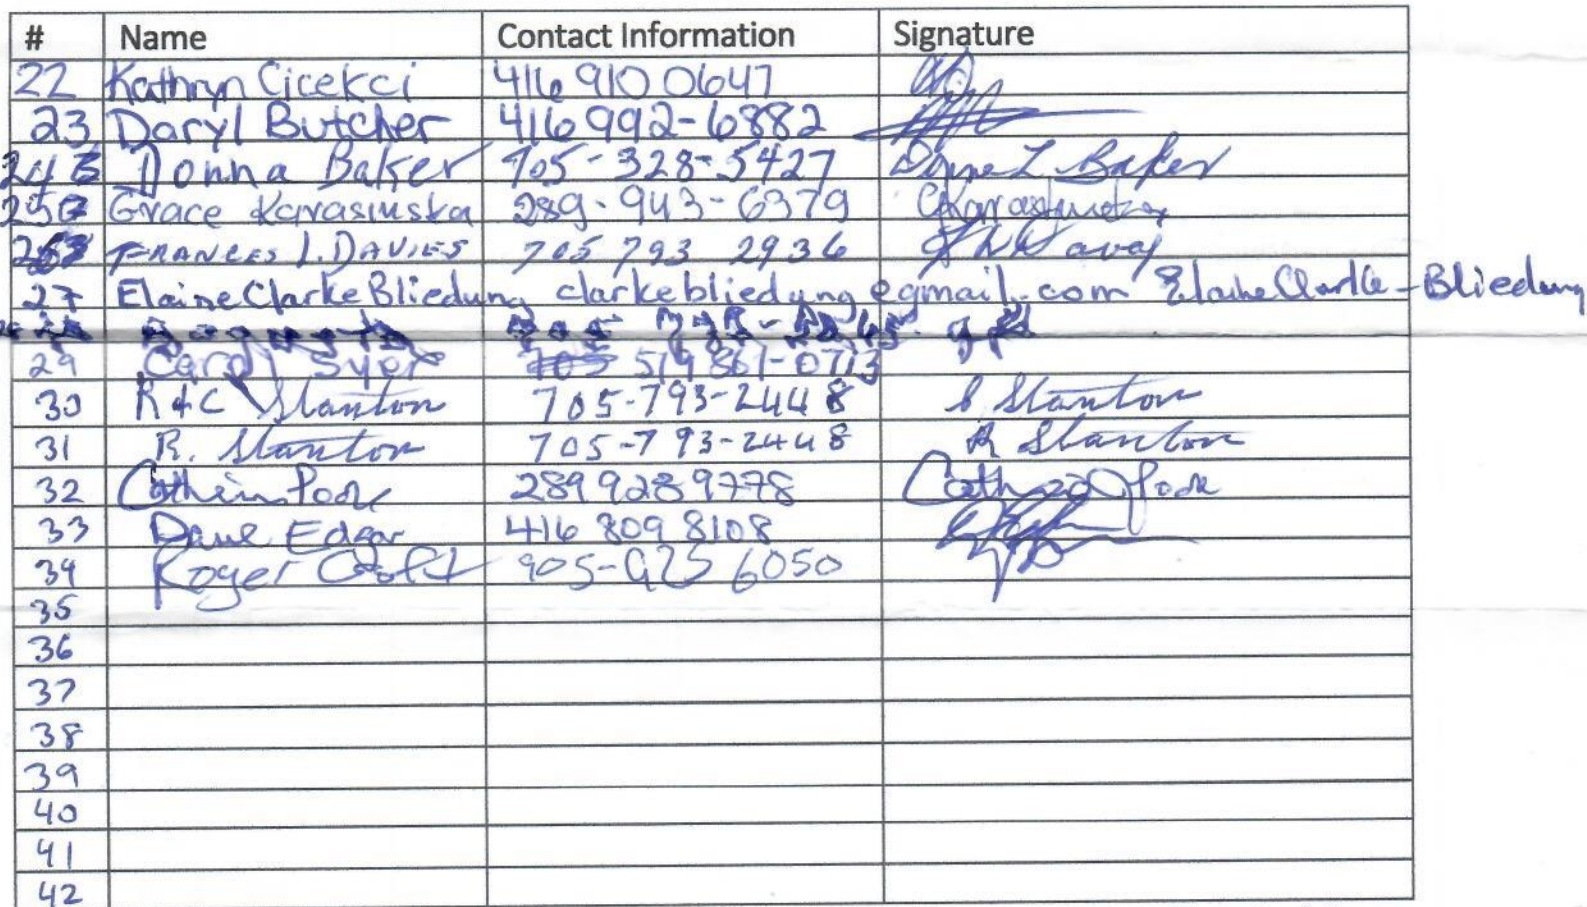 # Name Contact Information Signature
22 Kathryn Cicekci 416 910 0647
23 Daryl Butcher 416 992-6882
24 Donna Baker 705-328-5427 Donna L Baker
25 Grace Karasinska 289-943-6379 GKarasinska
26 FRANCES L. DAVIES 705 793 2936
27 Elaine Clarke Bliedung clarkebliedung@gmail.com Elaine Clarke-Bliedung
29 Carol Syer 705 519 861-0713
30 R & C Stanton 705-793-2448 C Stanton
31 R. Stanton 705-793-2448 R Stanton
32 289 928 9778
33 Dave Edgar 416 809 8108
34 Roger 905-925 6050
35
36
37
38
39
40
41
42